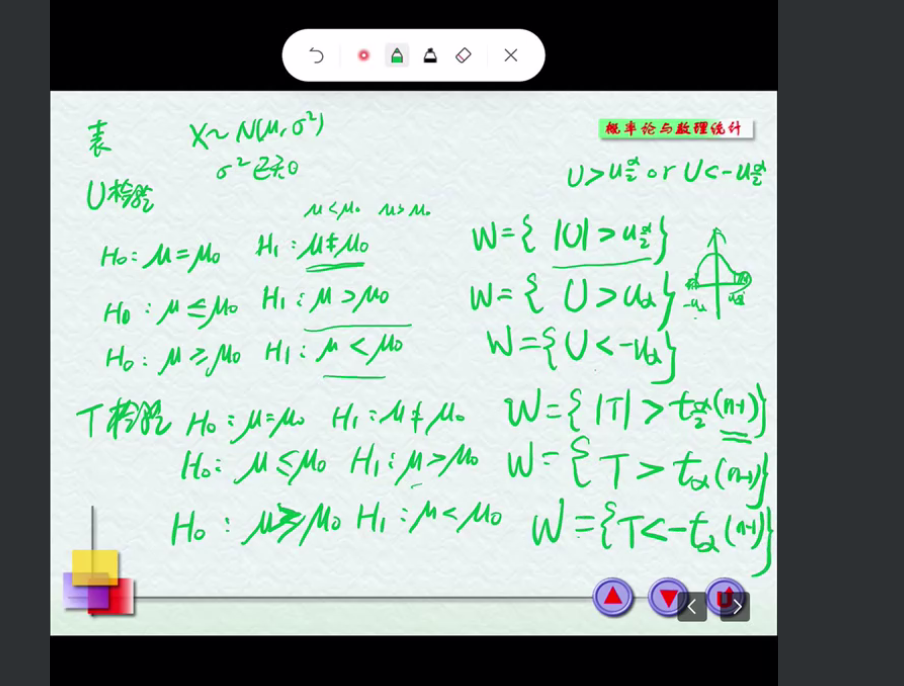 概率论与数理统计
表 X~N(μ, σ²)
σ²已知
U>u_{α/2} or U<-u_{α/2}
U检验
μ<μ₀ μ>μ₀
H₀: μ=μ₀ H₁: μ≠μ₀ W={ |U|>u_{α/2} }
H₀: μ≤μ₀ H₁: μ>μ₀ W={ U>u_α }
H₀: μ≥μ₀ H₁: μ<μ₀ W={ U<-u_α }
T检验 H₀: μ=μ₀ H₁: μ≠μ₀ W={ |T|>t_{α/2}(n-1) }
H₀: μ≤μ₀ H₁: μ>μ₀ W={ T>t_α(n-1) }
H₀: μ≥μ₀ H₁: μ<μ₀ W={ T<-t_α(n-1) }